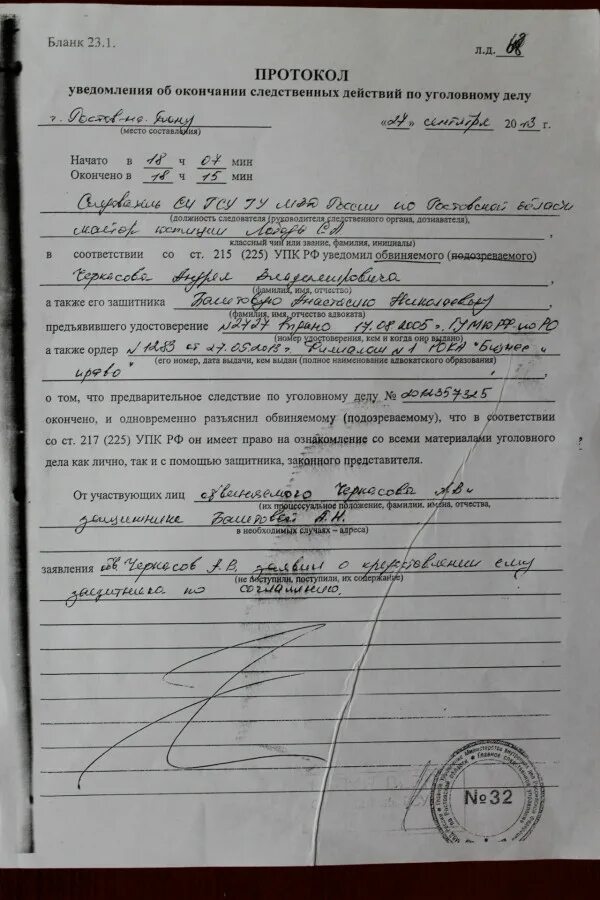 Бланк 23.1.
л.д. 68
ПРОТОКОЛ
уведомления об окончании следственных действий по уголовному делу
г. Ростов-на-Дону
«27» сентября 2013 г.
(место составления)
Начато в 18 ч 07 мин
Окончено в 18 ч 15 мин
Следователь СЧ ГСУ ГУ МВД России по Ростовской области
(должность следователя (руководителя следственного органа, дознавателя),
майор юстиции
классный чин или звание, фамилия, инициалы)
в соответствии со ст. 215 (225) УПК РФ уведомил обвиняемого (подозреваемого)
Черкасова Андрея Владимировича
(фамилия, имя, отчество)
а также его защитника Анастасию Николаевну
(фамилия, имя, отчество адвоката)
предъявившего удостоверение №2727 выдано 17.08.2005 г. ГУ МЮ РФ по РО
(номер удостоверения, кем и когда оно выдано)
а также ордер №1283 от 27.05.2013 г. Филиалом №1 РОКА "Бизнес и
(его номер, дата выдачи, кем выдан (полное наименование адвокатского образования)
право"
о том, что предварительное следствие по уголовному делу № 2012357325
окончено, и одновременно разъяснил обвиняемому (подозреваемому), что в соответствии
со ст. 217 (225) УПК РФ он имеет право на ознакомление со всеми материалами уголовного
дела как лично, так и с помощью защитника, законного представителя.
От участвующих лиц обвиняемого Черкасова А.В.,
(их процессуальное положение, фамилии, имена, отчества,
защитника А.Н.
в необходимых случаях – адреса)
заявления Черкасов А.В. заявил о предоставлении ему
(не поступили, поступили, их содержание)
защитника по соглашению.
№32